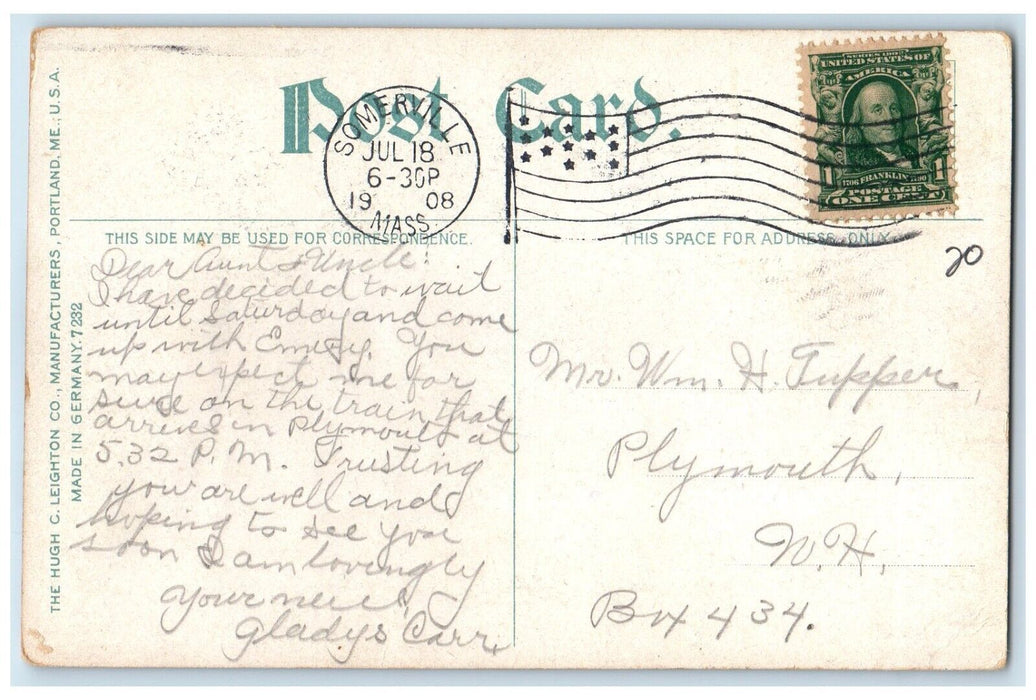 Post Card.
SOMERVILLE
JUL 18
6-30P
19 08
MASS.
SERIES 1902
UNITED STATES OF
AMERICA
1706 FRANKLIN 1790
1 1
POSTAGE
ONE CENT
THIS SIDE MAY BE USED FOR CORRESPONDENCE.
THIS SPACE FOR ADDRESS ONLY.
20
THE HUGH C. LEIGHTON CO., MANUFACTURERS, PORTLAND, ME., U.S.A.
MADE IN GERMANY. 7232
Dear Aunt & Uncle:
I have decided to wait
until Saturday and come
up with Emery. You
may expect me for
sure on the train that
arrives in Plymouth at
5.32 P.M. Trusting
you are well and
hoping to see you
soon I am lovingly
your niece,
Gladys Carr.
Mr. Wm. H. Tupper,
Plymouth,
N.H.
Box 434.